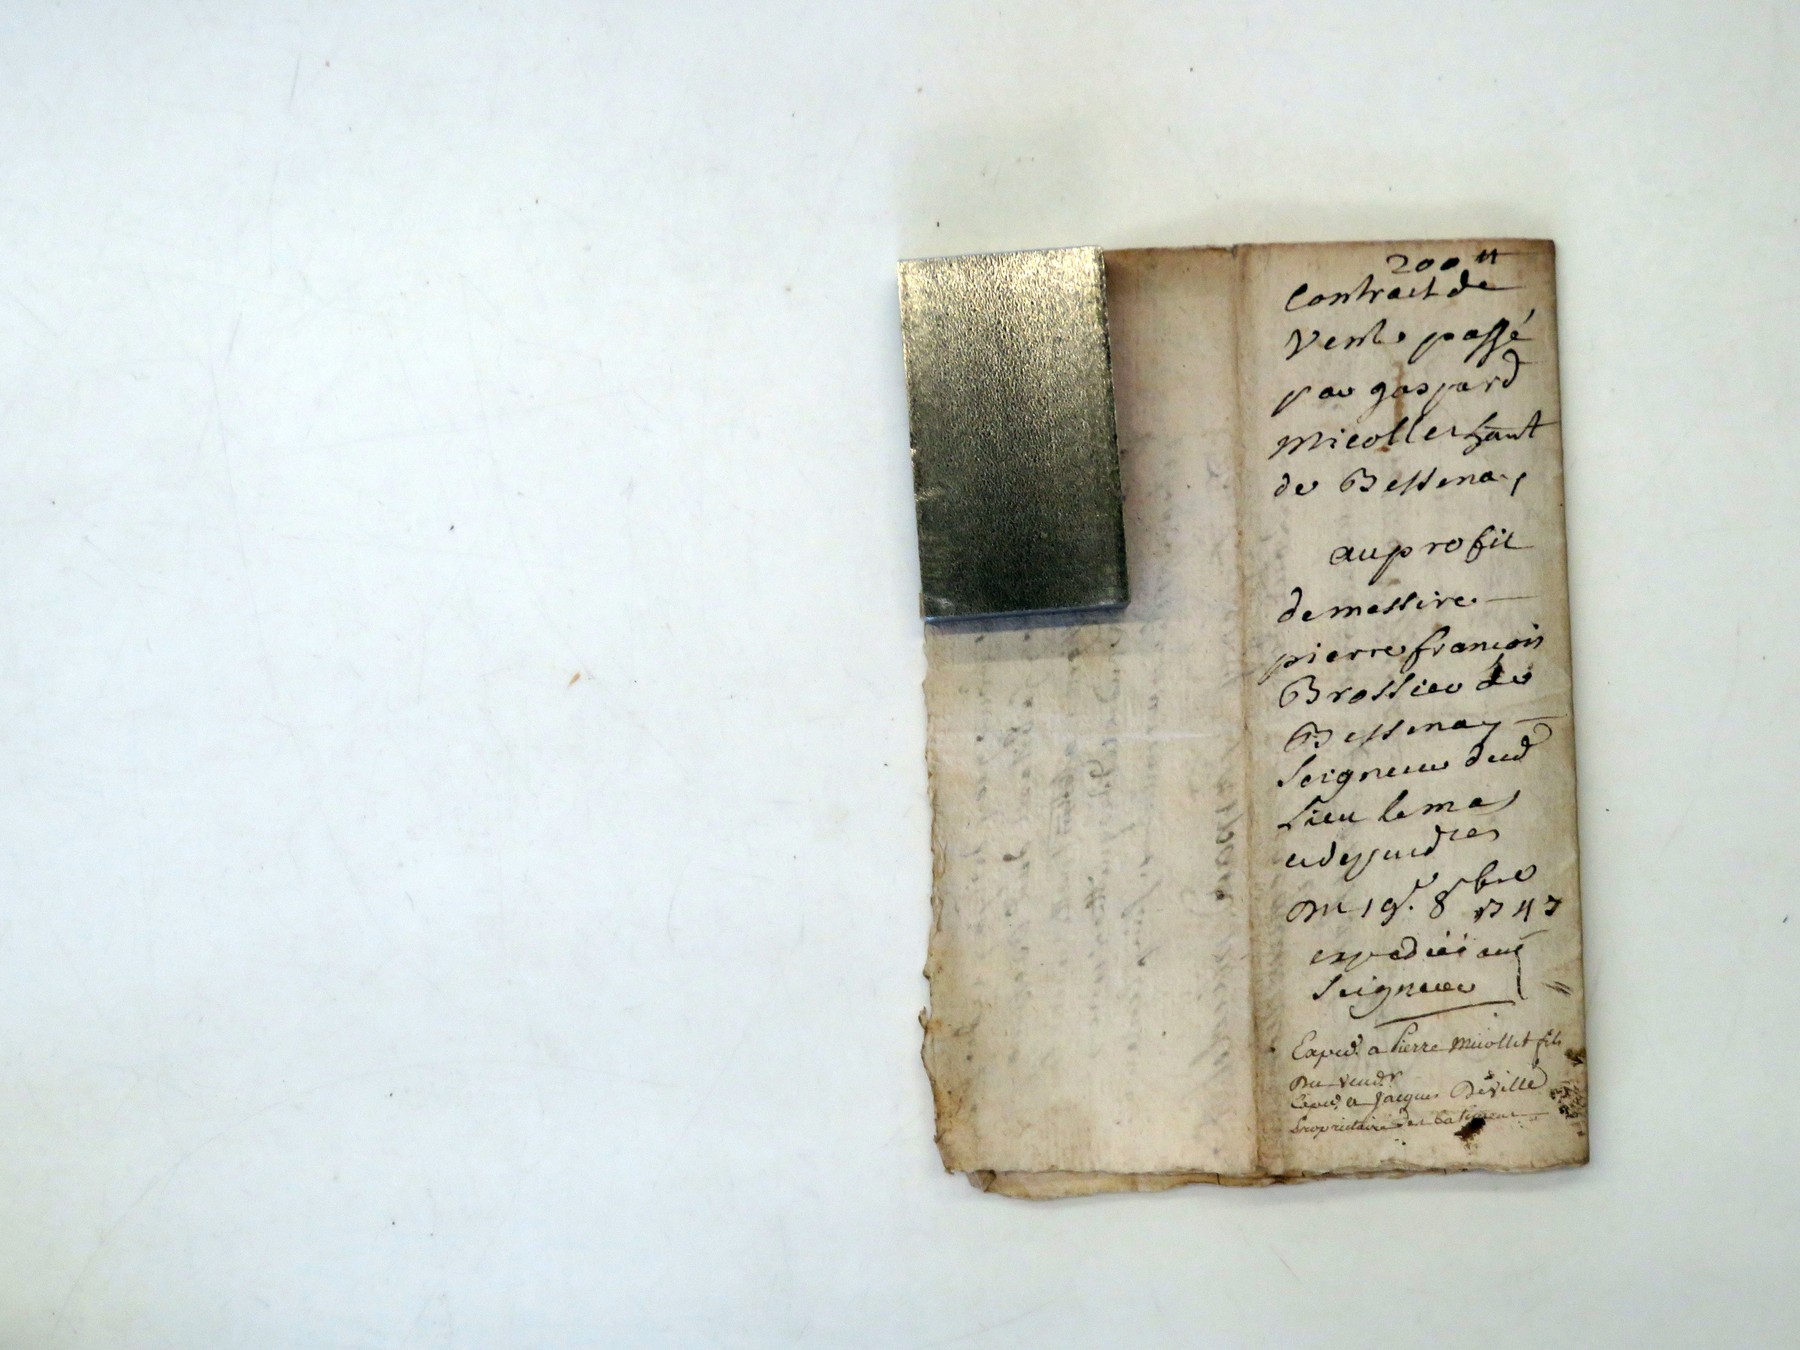 200 ₶
Contract de
Vente passé
par gaspard
Micollet hant
de Bessenay
au profit
de messire
pierre françois
Brossier de
Bessenay
Seigneur dud
Lieu le mas
et dependces
Du 19e. 8bre 1747
expediée aud
Seigneur
Exped. a Pierre Micollet fils
Du vendr
Exped. a Jacques Deville
Propriétaire des batiment